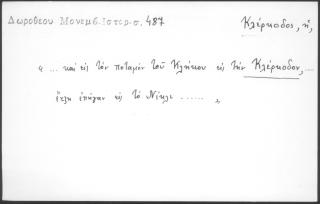 Δωροθεου Μονεμβ. Ιστορ. σ. 487
Κλέρκοδος, ἡ,
« ... καὶ εἰς τὸν ποταμὸν τοῦ Κλήκιου εἰς τὴν Κλέρκοδον, ...
ἐπῆγαν εἰς τὸ Νίκλι ...... »